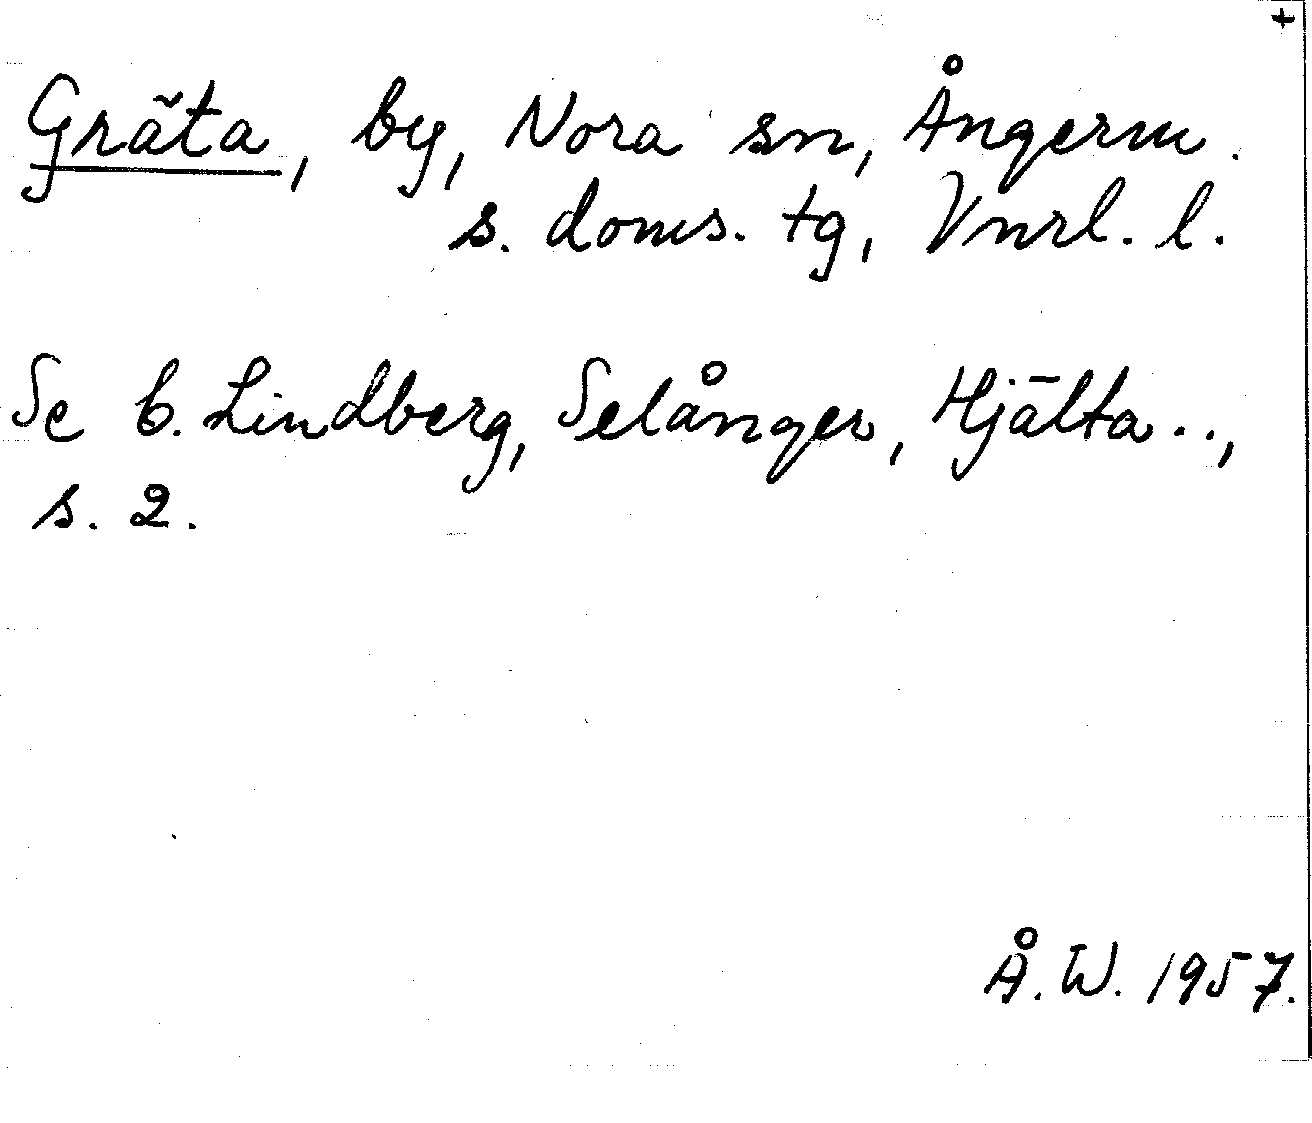 +
Gräta, by, Nora sn, Ångerm.
s. doms. tg, Vnrl. l.
Se C. Lindberg, Selånger, Hjälta..,
s. 2.
Å. W. 1957.